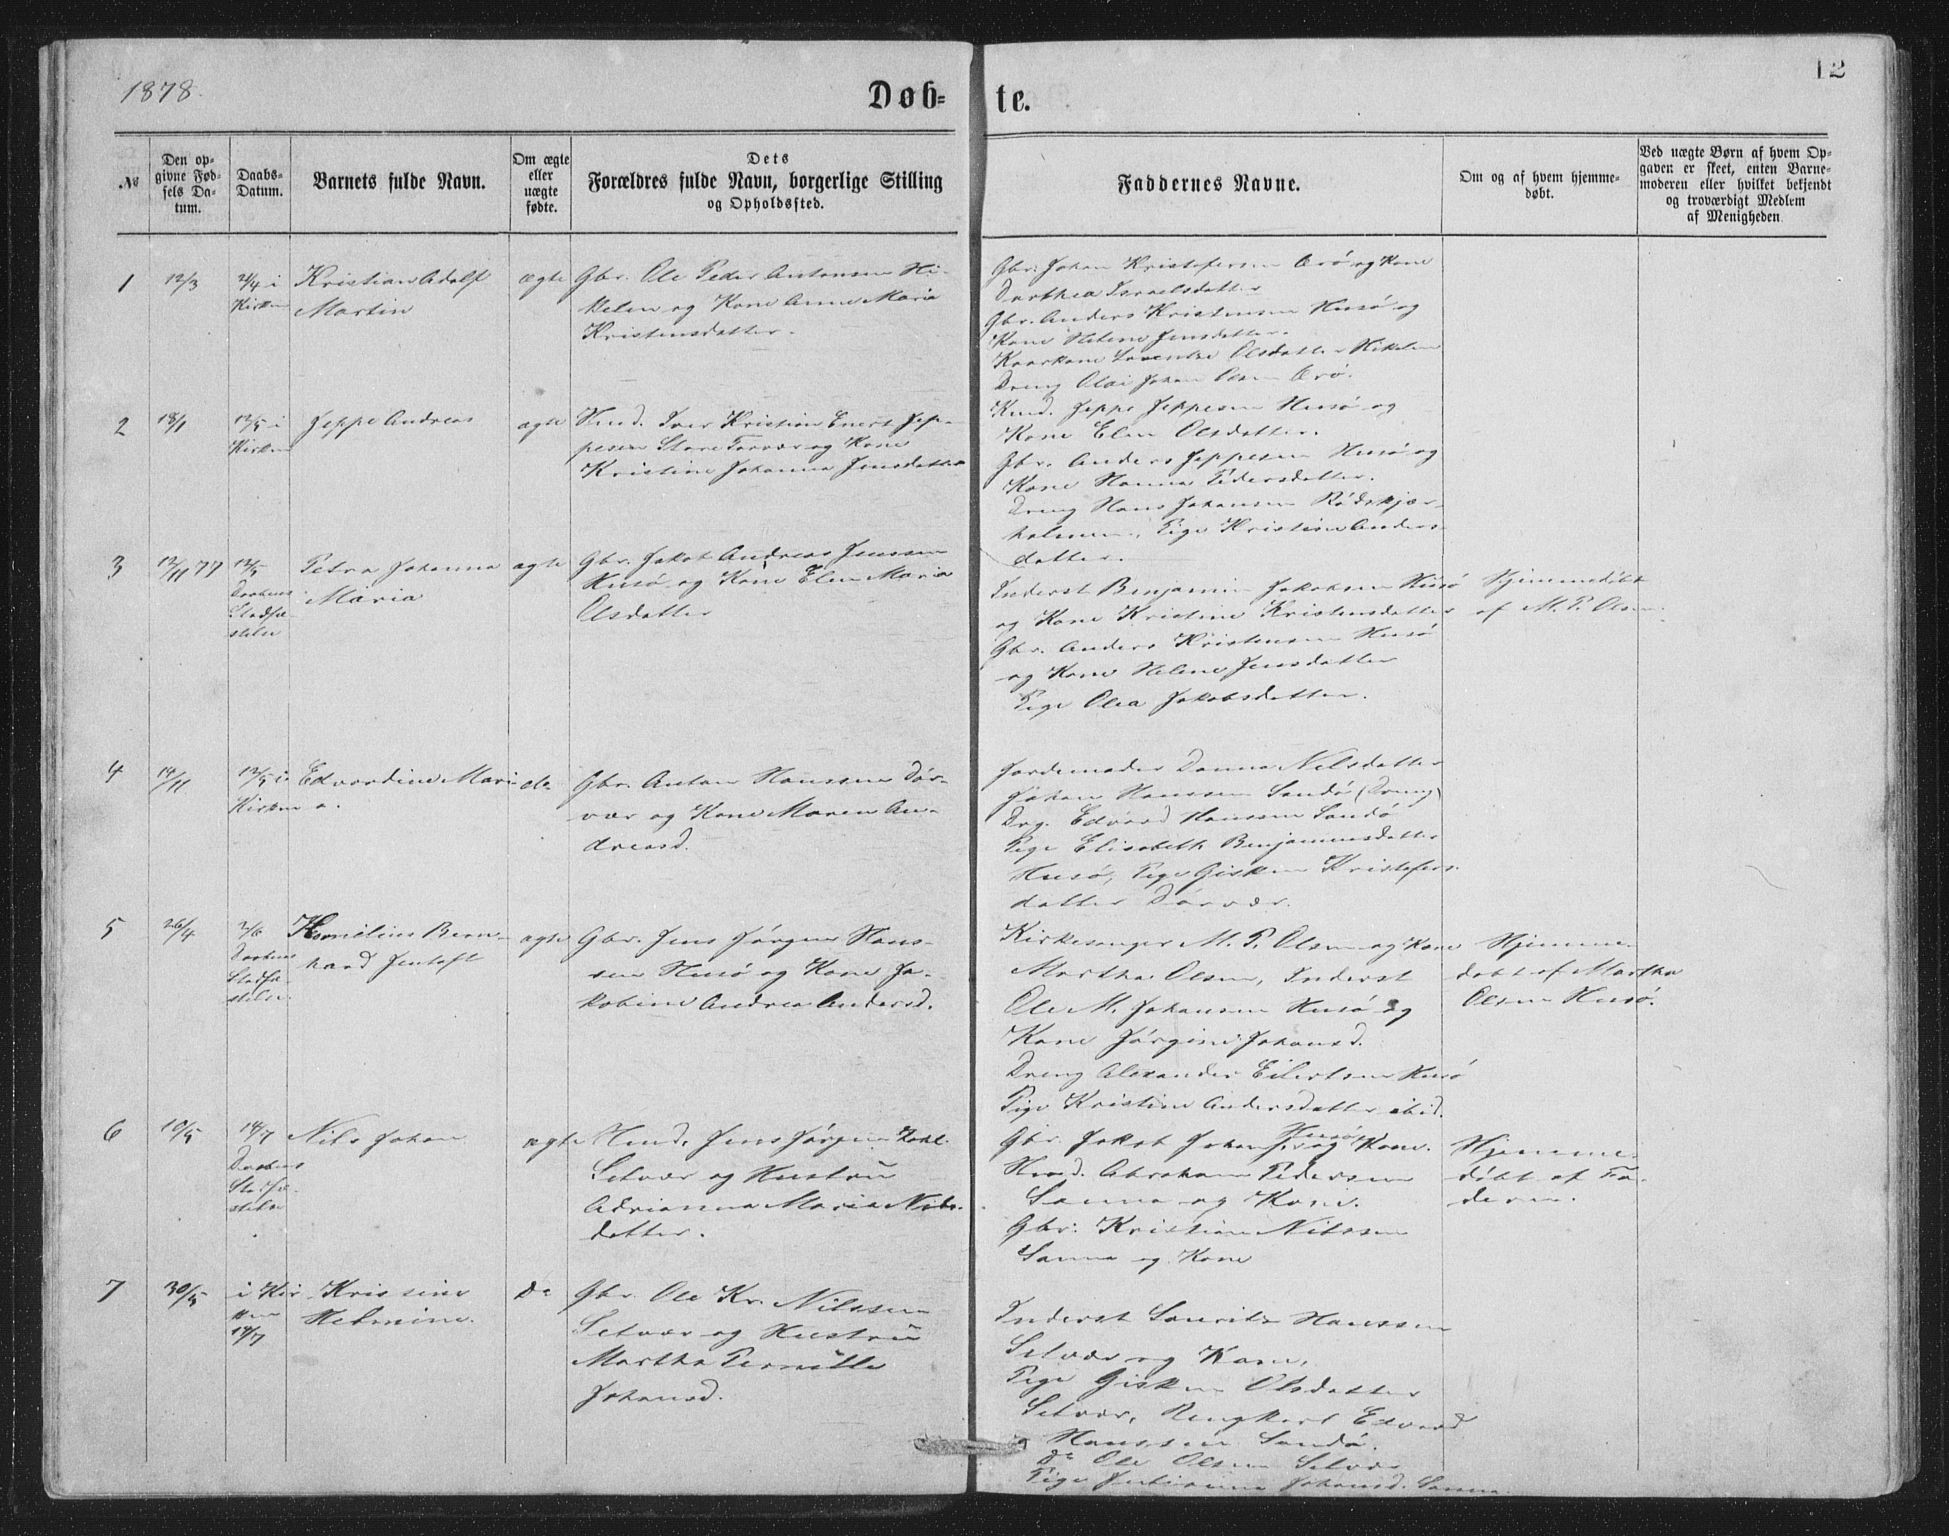 1878.
Døb-
te.
12
№
Den op-
givne Fød-
sels Da-
tum.
Daabs-
Datum.
Barnets fulde Navn.
Om ægte
eller
uægte
fødte.
Dets
Forældres fulde Navn, borgerlige Stilling
og Opholdssted.
Faddernes Navne.
Om og af hvem hjemme-
døbt.
Ved uægte Børn af hvem Op-
gaven er skeet, enten Barne-
moderen eller hvilket bekjendt
og troværdigt Medlem
af Menigheden
1
12/3
21/4 i
Kirken
Kristian Adolf
Martin
ægte
Gbr. Ole Peder Antonsen Hi-
kelen og Kone Anne Maria
Kristensdatter.
Gbr. Johan Kristofersen Erø og Kone
Dorthea Israelsdatter
Gbr. Anders Kristensen Husø og
Kone Helene Jensdatter.
Kaarkone Lorentze Olsdatter Hikelen
Dreng Olai Johan Olsen Erø.
2
18/1
12/5 i
Kirken
Jeppe Andreas
ægte
Hmd. Iver Kristian Enert Jep-
pesen Store Torvær og Kone
Kristine Johanna Jensdatter
Hmd. Jeppe Jeppesen Husø og
Kone Elen Olsdatter.
Gbr. Anders Jeppesen Husø og
Kone Hanna Pedersdatter.
Dreng Hans Johansen Rødskjær-
holmen, Pige Kristine Anders-
datter.
3
12/11 77
12/5
Daabens
Stadfæ-
stelse
Petra Johanna
Maria
ægte
Gbr. Jakob Andreas Jenssen
Husø og Kone Elen Maria
Olsdatter
Inderst Benjamin Jakobsen Husø
og Kone Kristine Kristensdatter
Gbr. Anders Kristensen Husø
og Kone Helene Jensdatter
Pige Olea Jakobsdatter.
Hjemmedøbt
af M. P. Olsen.
4
14/11
12/5 i
Kirken
Edvardine Mari-
a.
do
Gbr. Anton Hanssen Dør-
vær og Kone Maren An-
dreasd.
Jordemoder Danna Nilsdatter
Johan Hanssen Sandø (Dreng)
Drg. Edvard Hanssen Sandø
Pige Elisabeth Benjaminsdatter
Husø, Pige Gisken Kristofers-
datter Dørvær.
5
26/4
2/6
Daabens
Stadfæ-
stelse.
Kornelius Bern-
hard Jentoft
ægte
Gbr. Jens Jørgen Hans-
sen Husø og Kone Ja-
kobine Andrea Andersd.
Kirkesanger M. P. Olsen og Kone
Martha Olsen, Inderst
Ole M. Johansen Husø og
Kone Jørgine Johansd.
Dreng Alexander Eilertsen Husø
Pige Kristine Andersdatter ibid.
Hjemme-
døbt af Martha
Olsen Husø.
6
10/5
14/7
Daabens
Stadfæ-
stelse
Nils Johan
ægte
Hmd. Jens Jørgen Zahl
Selvær og Hustru
Adrianna Maria Nils-
datter.
Gbr. Jakob Johans. Husø og Kone.
Hmd. Abraham Pedersen
Sanna og Kone.
Gbr. Kristian Nilssen
Sanna og Kone
Hjemme-
døbt af Fa-
deren.
7
30/5
i Kir-
ken
14/7
Kristine
Helmine.
Do
Gbr. Ole Kr. Nilssen
Selvær og Hustru
Martha Pernille
Johansd.
Inderst Lauritz Hanssen
Selvær og Kone,
Pige Gisken Olsdatter
Selvær, Ungkarl Edvard
Hanssen Sandø.
Do Ole Olsen Selvær
Pige Julianna Johansd. Sanna.